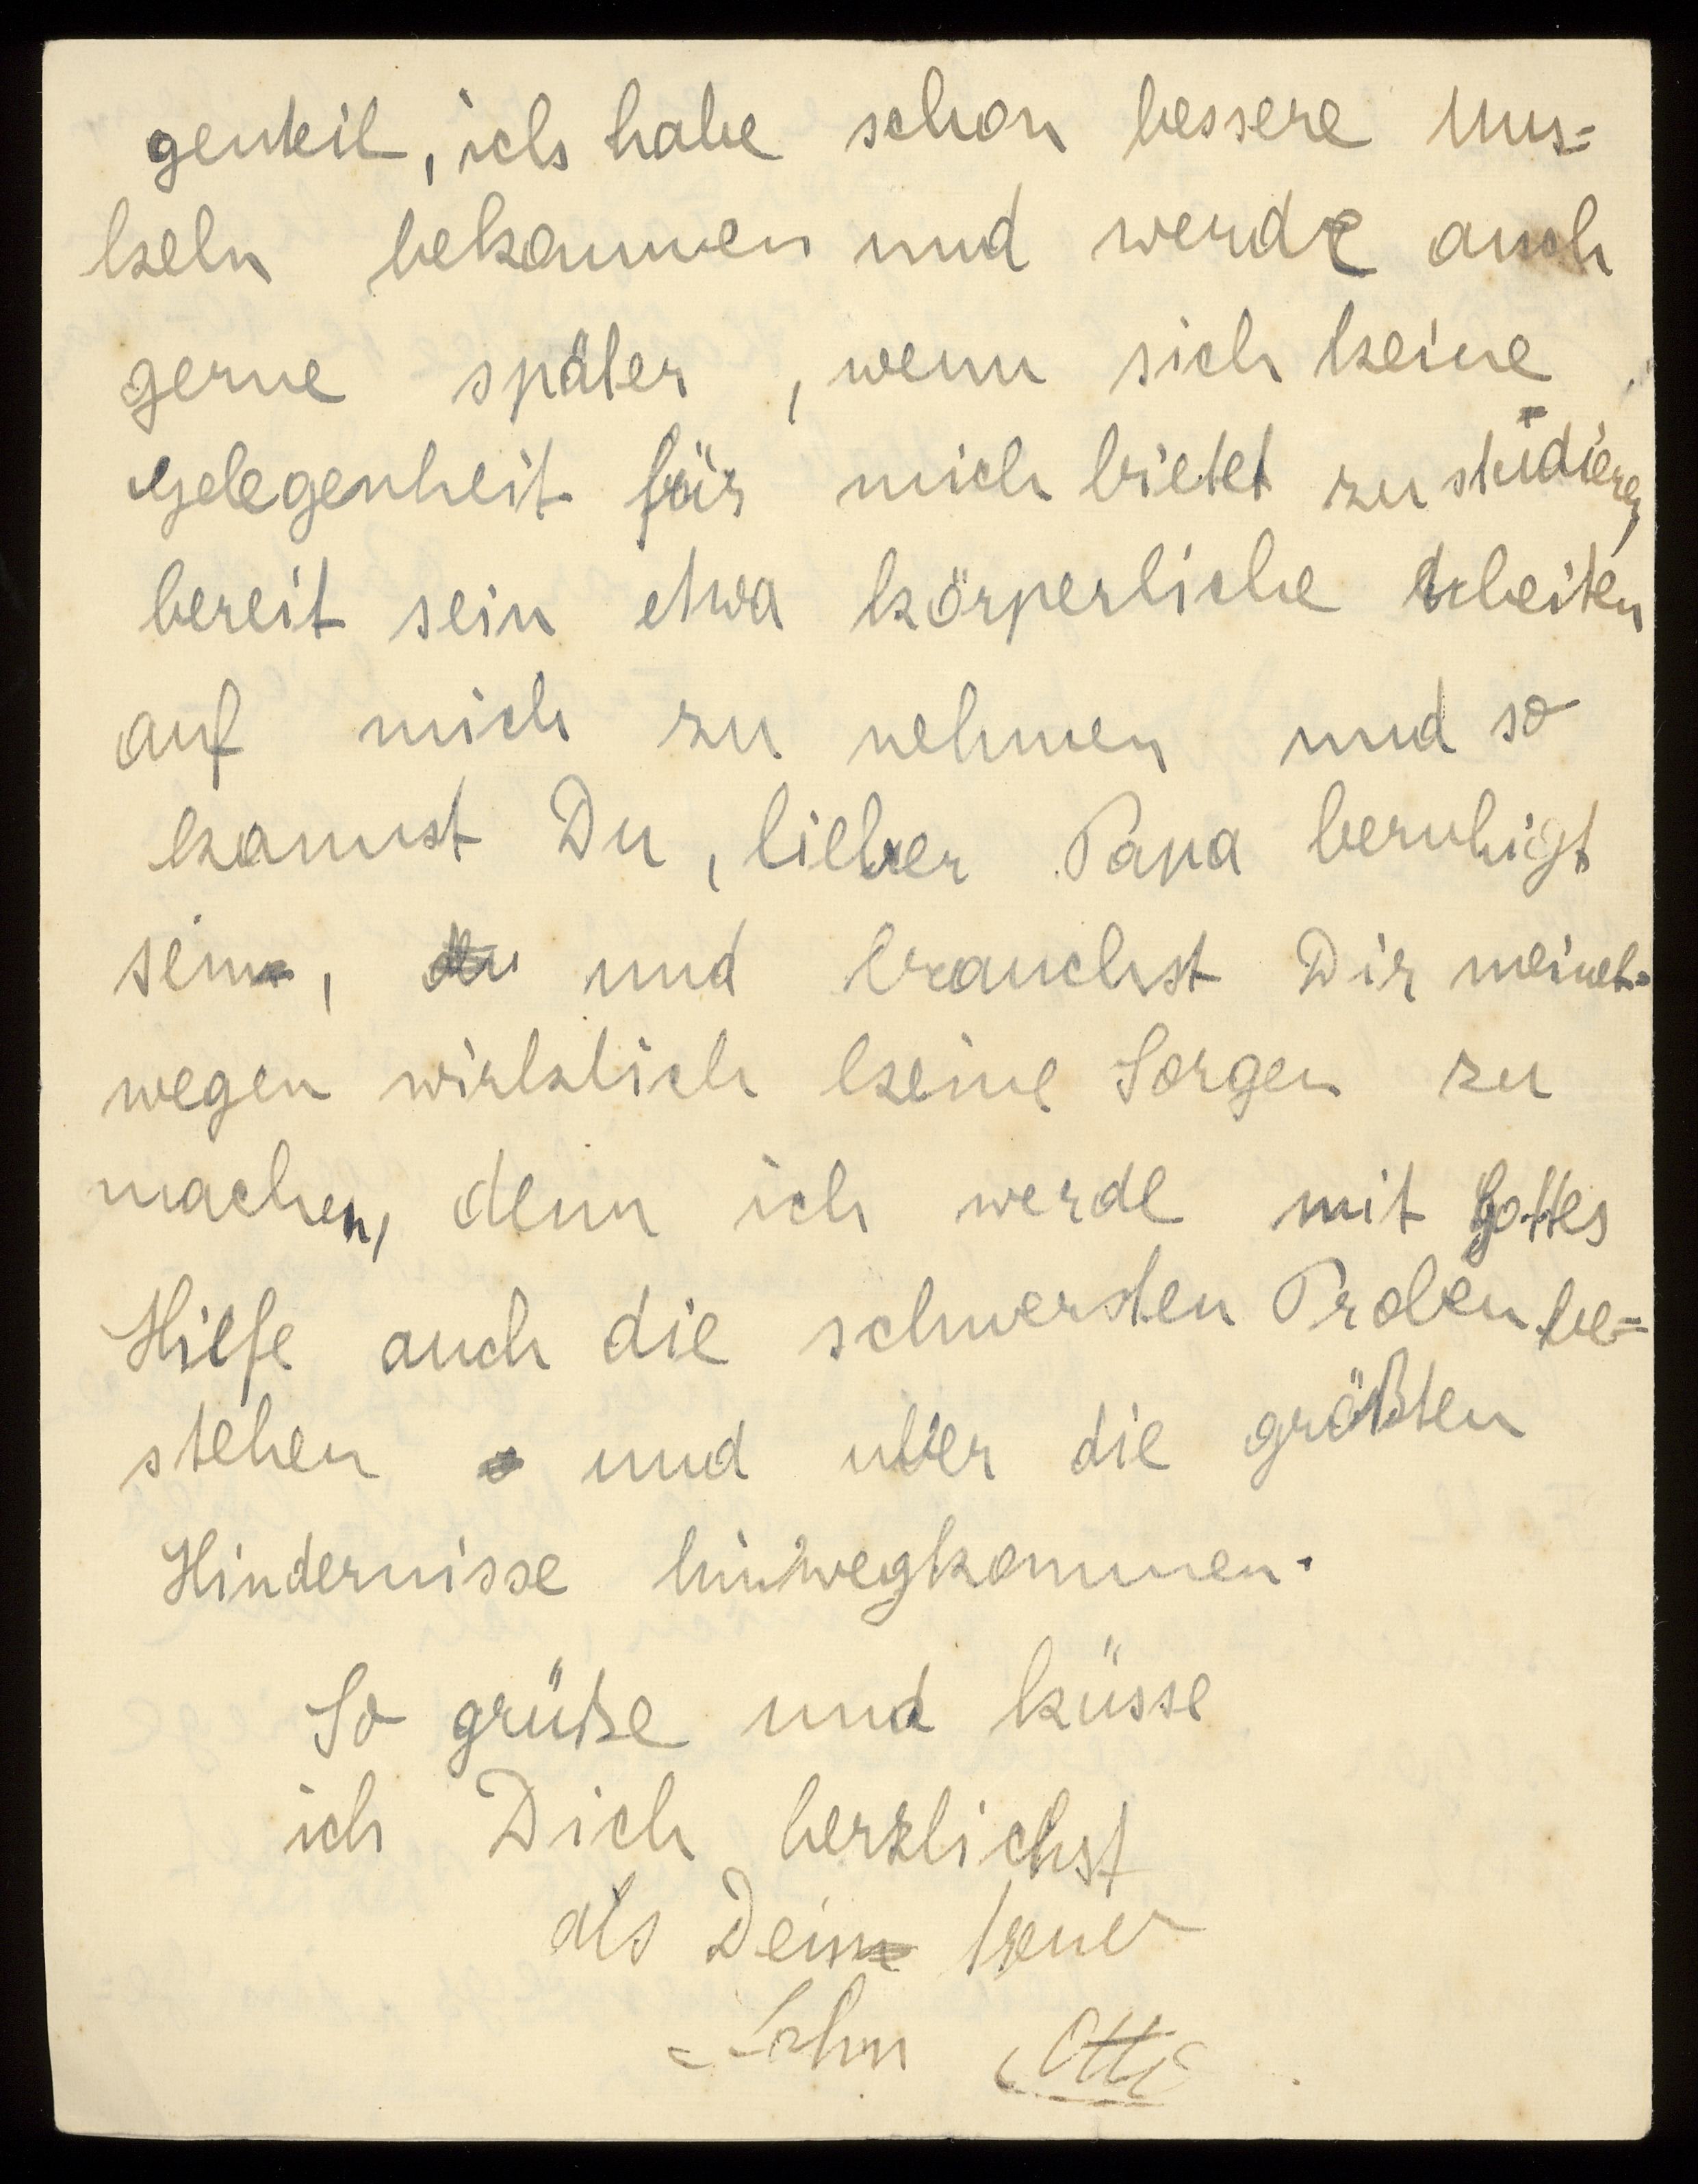 genteil, ich habe schon bessere Mus=
keln bekommen und werde auch
gerne später, wenn sich keine
Gelegenheit für mich bietet zu studieren,
bereit sein etwa körperliche Arbeiten
auf mich zu nehmen und so
kannst Du, lieber Papa beruhigt
sein, und brauchst Dir meinet-
wegen wirklich keine Sorgen zu
machen, denn ich werde mit Gottes
Hilfe auch die schwersten Proben be=
stehen und über die größten
Hindernisse hinwegkommen.
So grüße und küsse
ich Dich herzlichst
als Dein treuer
Sohn Otto